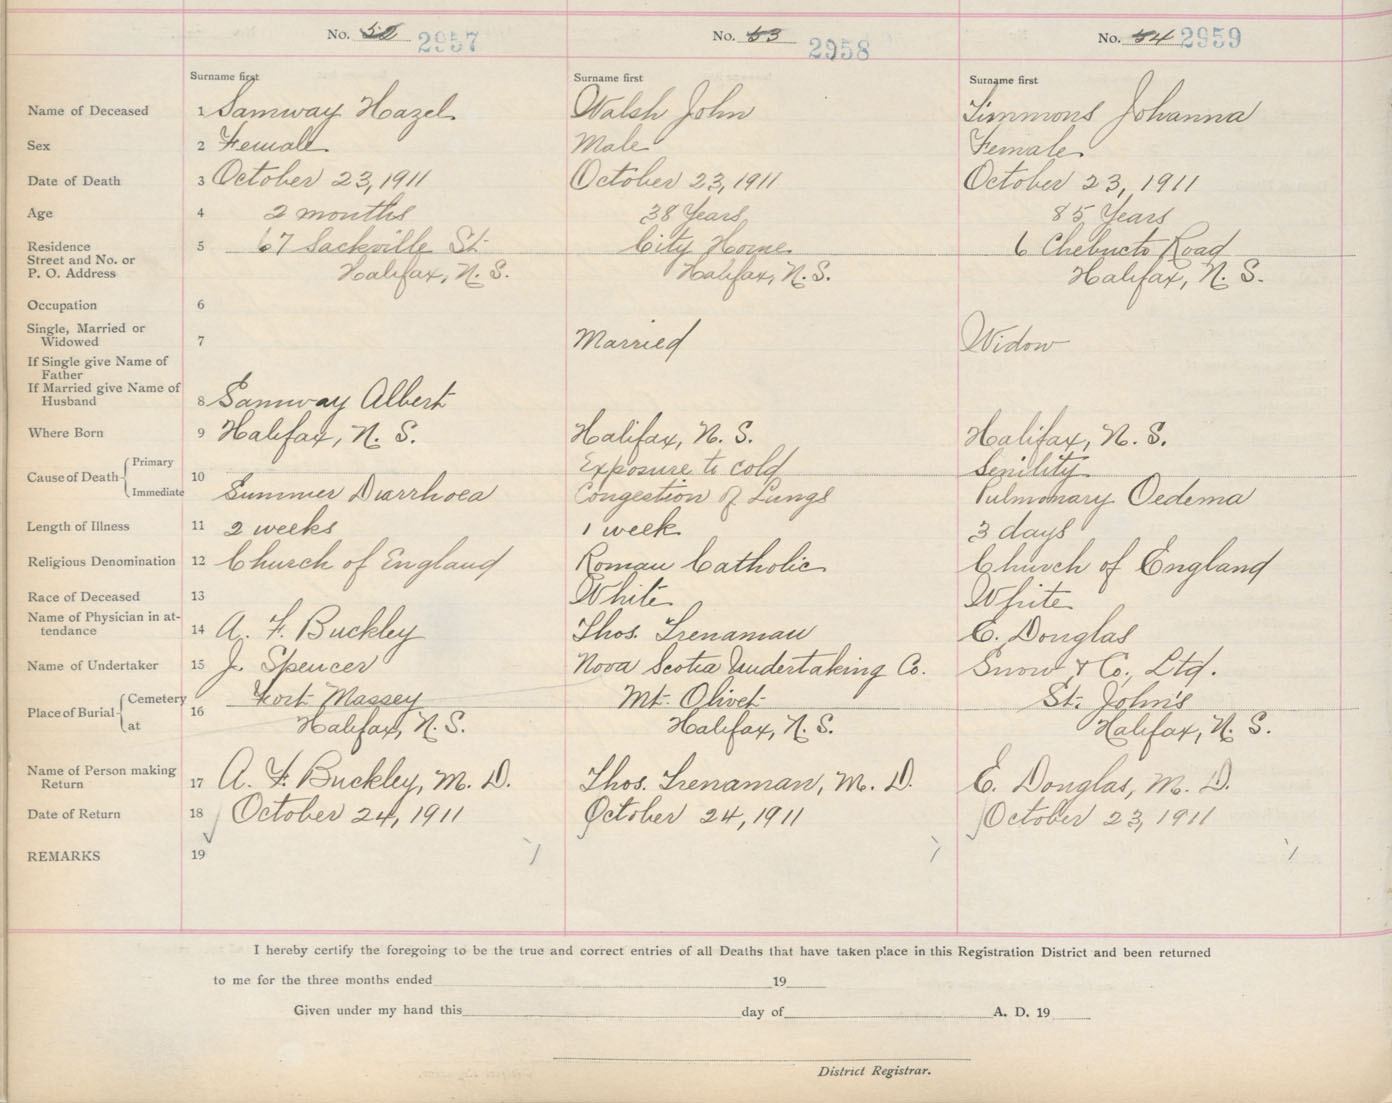 No. 52 2957 No. 53 2958 No. 54 2959
Surname first Surname first Surname first
Name of Deceased 1 Samway Hazel Walsh John Timmons Johanna
Sex 2 Female Male Female
Date of Death 3 October 23, 1911 October 23, 1911 October 23, 1911
Age 4 2 months 38 Years 85 Years
Residence 5 67 Sackville St. City Home 6 Chebucto Road
Street and No. or
P. O. Address Halifax, N. S. Halifax, N. S. Halifax, N. S.
Occupation 6
Single, Married or
Widowed 7 Married Widow
If Single give Name of
Father
If Married give Name of
Husband 8 Samway Albert
Where Born 9 Halifax, N. S. Halifax, N. S. Halifax, N. S.
Cause of Death Primary 10 Exposure to cold Senility
Immediate Summer Diarrhoea Congestion of Lungs Pulmonary Oedema
Length of Illness 11 2 weeks 1 week 3 days
Religious Denomination 12 Church of England Roman Catholic Church of England
Race of Deceased 13 White White
Name of Physician in at-
tendance 14 A. F. Buckley Thos. Trenaman E. Douglas
Name of Undertaker 15 J. Spencer Nova Scotia Undertaking Co. Snow & Co., Ltd.
Place of Burial Cemetery 16 Fort Massey Mt. Olivet St. John's
at Halifax, N. S. Halifax, N. S. Halifax, N. S.
Name of Person making
Return 17 A. F. Buckley, M. D. Thos. Trenaman, M. D. E. Douglas, M. D.
Date of Return 18 October 24, 1911 October 24, 1911 October 23, 1911
REMARKS 19
I hereby certify the foregoing to be the true and correct entries of all Deaths that have taken place in this Registration District and been returned
to me for the three months ended 19
Given under my hand this day of A. D. 19
District Registrar.